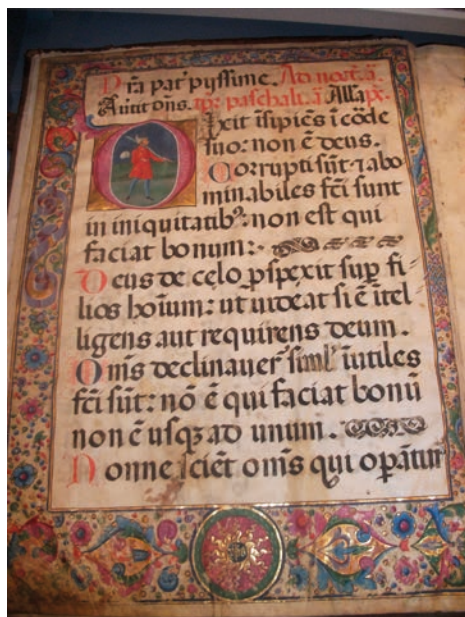 pyssime. Ad noct. ā.
dn̄s. paschali. ā Alla ps.
Dixit īsipiēs ī cōde
suo: non ē deus.
Corrupti sūt ⁊ abo
minabiles fc̄i sunt
in iniquitatibꝰ: non est qui
faciat bonum:
Deus de celo ꝓspexit suꝑ fi-
lios hoīum: ut uideat si ē ītel-
ligens aut requirens deum.
Om̄s declinauer̄ siml̄ īutiles
fc̄i sūt: nō ē qui faciat bonū
non ē usqꝫ ad unum.
Nonne sciēt om̄s qui oꝑātur